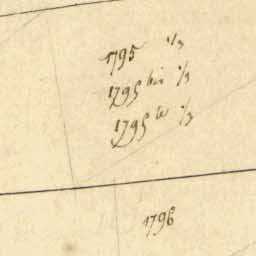 1795 1/3
1795 bis 1/3
1795 te 1/3
1796